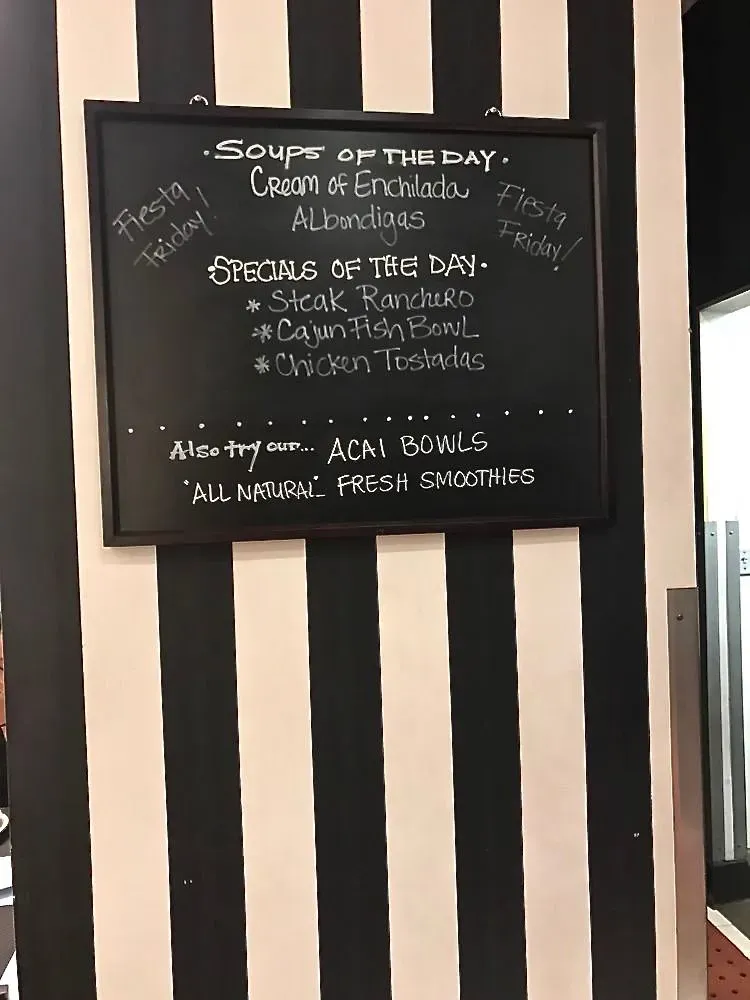 ·SOUPS OF THE DAY·
Cream of Enchilada
ALbondigas
Fiesta
Friday!
Fiesta
Friday!
·SPECIALS OF THE DAY·
* Steak Ranchero
* Cajun Fish Bowl
* Chicken Tostadas
Also try our... ACAI BOWLS
"ALL NATURAL" FRESH SMOOTHIES